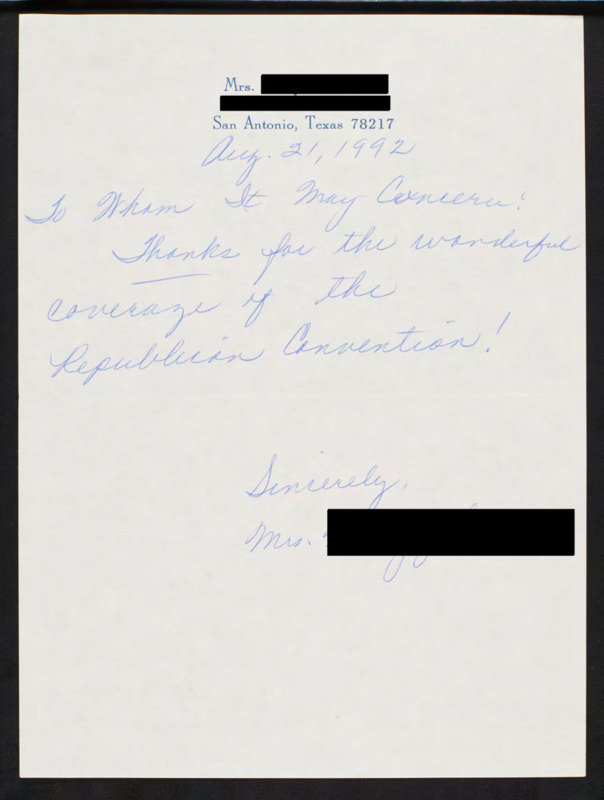 Mrs.
San Antonio, Texas 78217
Aug. 21, 1992
To Whom It May Concern:
Thanks for the wonderful
coverage of the
Republican Convention!
Sincerely,
Mrs.